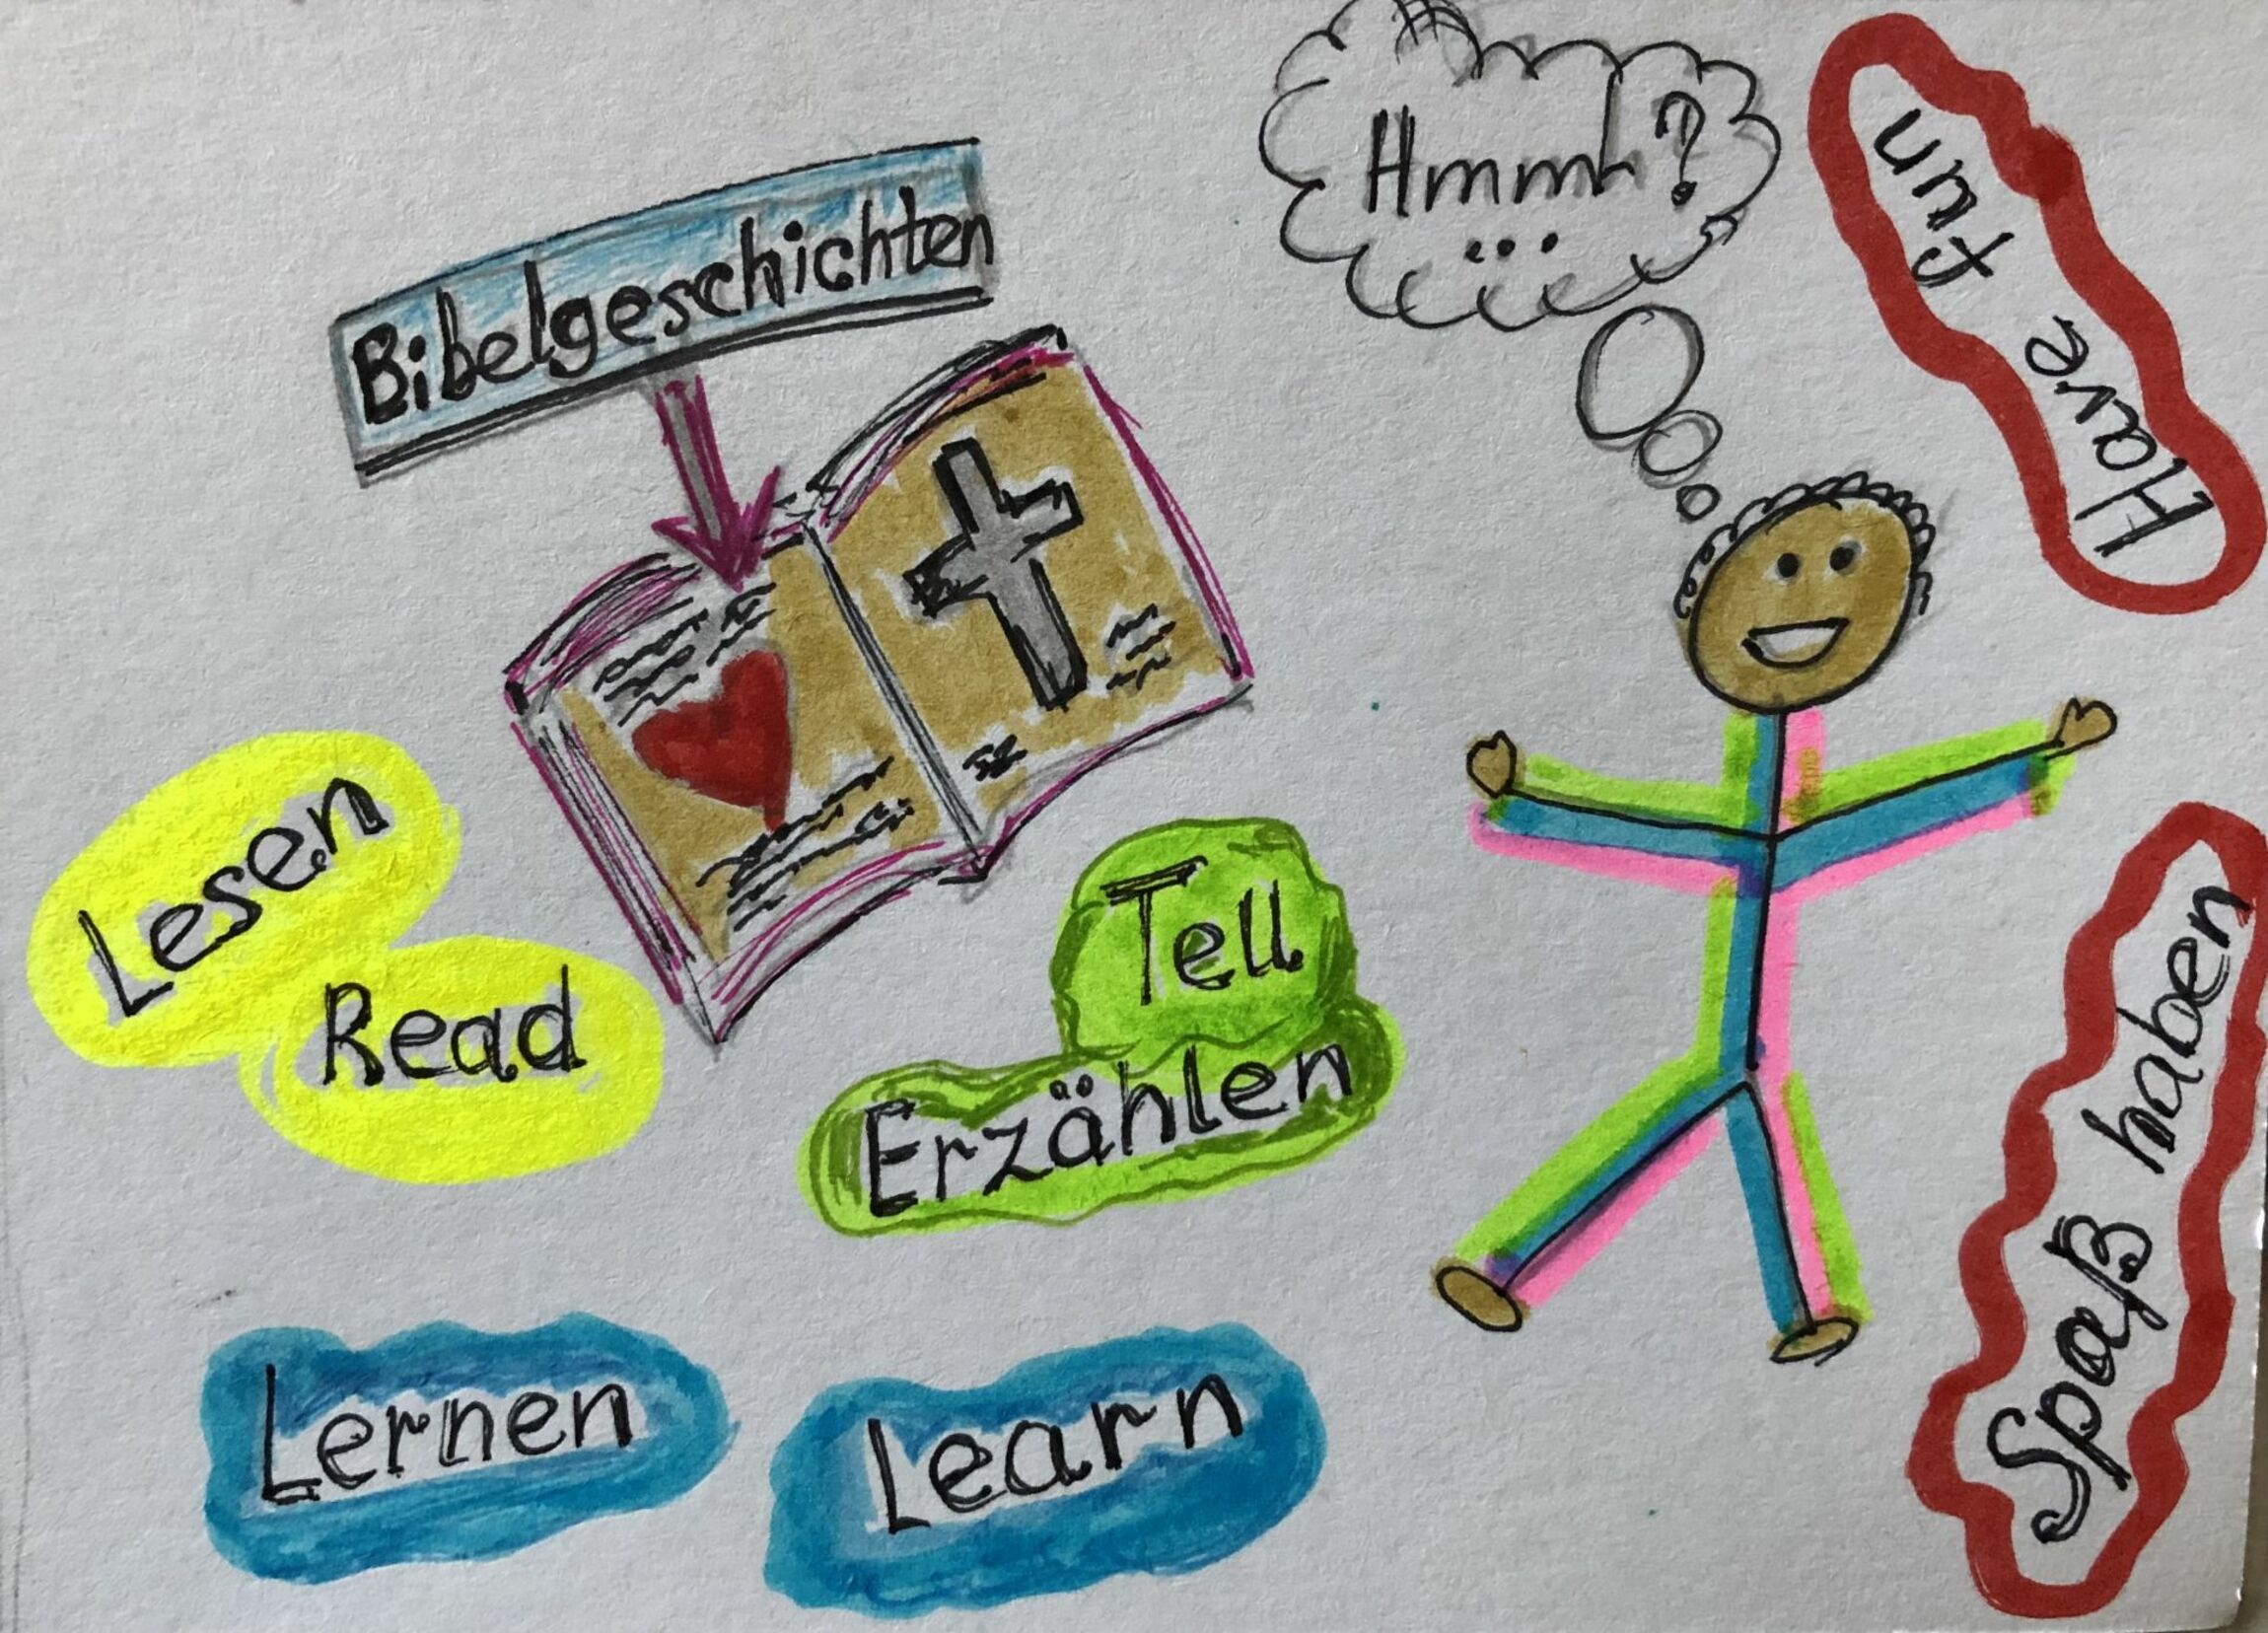 Bibelgeschichten
Hmmh?
...
Have fun
Lesen
Read
Tell
Erzählen
Spaß haben
Lernen
Learn